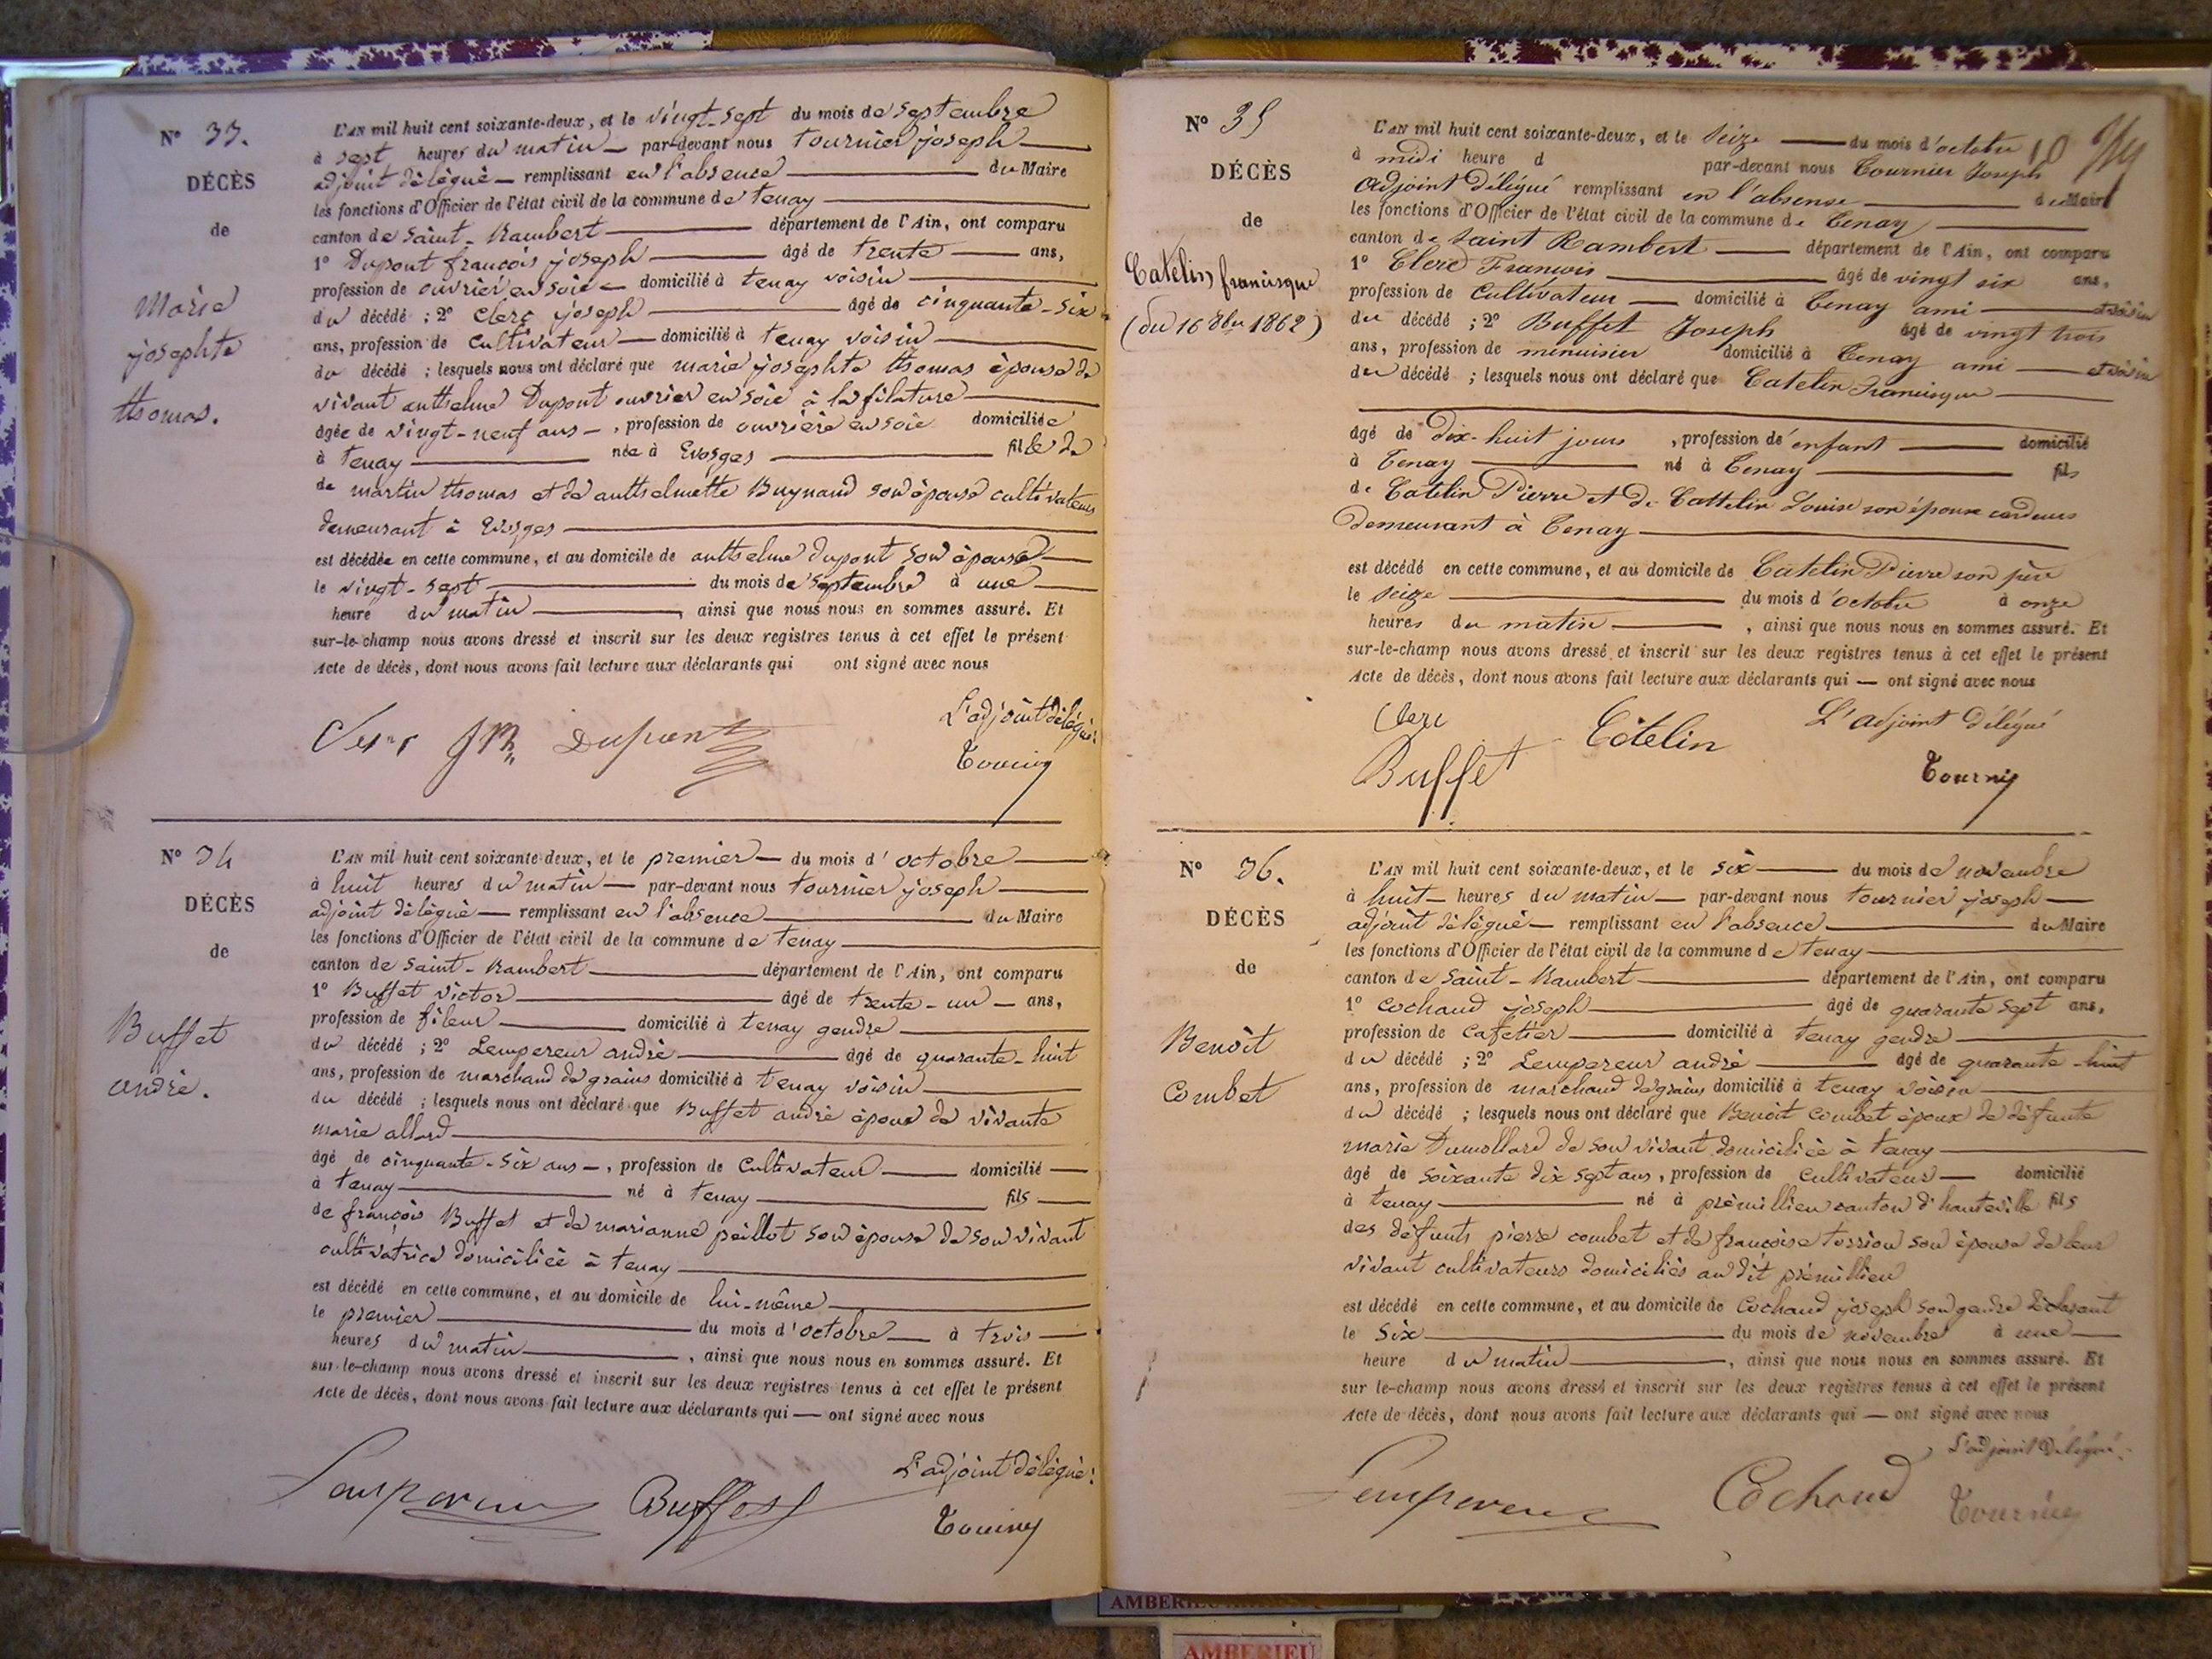 N° 33.
DÉCÈS
de
Marie
josephte
thomas.
L'AN mil huit cent soixante-deux, et le vingt-sept du mois de septembre
à sept heures du matin par-devant nous tournier joseph
adjoint délégué remplissant en l'absence du Maire
les fonctions d'Officier de l'état civil de la commune de tenay
canton de saint-Rambert département de l'Ain, ont comparu
1° Dupont françois joseph âgé de trente ans,
profession de ouvrier en soie domicilié à tenay voisin
du décédé ; 2° clerc joseph âgé de cinquante-six
ans, profession de cultivateur domicilié à tenay voisin
du décédé ; lesquels nous ont déclaré que marie josephte thomas épouse de
vivant anthelme Dupont ouvrier en soie à la filature
âgée de vingt-neuf ans, profession de ouvrière en soie domiciliée
à tenay née à Evosges fille de
de martin thomas et de anthelmette Buynand son épouse cultivateurs
demeurant à Evosges
est décédée en cette commune, et au domicile de anthelme dupont son épouse
le vingt-sept du mois de septembre à une
heure du matin, ainsi que nous nous en sommes assuré. Et
sur-le-champ nous avons dressé et inscrit sur les deux registres tenus à cet effet le présent
Acte de décès, dont nous avons fait lecture aux déclarants qui ont signé avec nous
L'adjoint délégué:
Dupont
N° 34
DÉCÈS
de
Buffet
andré.
L'AN mil huit cent soixante-deux, et le premier du mois d'octobre
à huit heures du matin par-devant nous tournier joseph
adjoint délégué remplissant en l'absence du Maire
les fonctions d'Officier de l'état civil de la commune de tenay
canton de saint-Rambert département de l'Ain, ont comparu
1° Buffet victor âgé de trente-un ans,
profession de fileur domicilié à tenay gendre
du décédé ; 2° Lempereur andré âgé de quarante-huit
ans, profession de marchand de grains domicilié à tenay voisin
du décédé ; lesquels nous ont déclaré que Buffet andré époux de vivante
marie allard
âgé de cinquante-six ans, profession de cultivateur domicilié
à tenay né à tenay fils
de françois Buffet et de marianne peillot son épouse de son vivant
cultivatrice domiciliée à tenay
est décédé en cette commune, et au domicile de lui-même
le premier du mois d'octobre à trois
heures du matin, ainsi que nous nous en sommes assuré. Et
sur-le-champ nous avons dressé et inscrit sur les deux registres tenus à cet effet le présent
Acte de décès, dont nous avons fait lecture aux déclarants qui ont signé avec nous
L'adjoint délégué:
Lempereur Buffet
N° 35
DÉCÈS
de
Catelin francisque
(du 16 8bre 1862)
L'AN mil huit cent soixante-deux, et le seize du mois d'octobre
à midi heure d par-devant nous Tournier Joseph
adjoint délégué remplissant en l'absense du Maire
les fonctions d'Officier de l'état civil de la commune de Tenay
canton de saint Rambert département de l'Ain, ont comparu
1° Clerc François âgé de vingt six ans,
profession de cultivateur domicilié à Tenay ami et voisin
du décédé ; 2° Buffet Joseph âgé de vingt trois
ans, profession de menuisier domicilié à Tenay ami et voisin
du décédé ; lesquels nous ont déclaré que Catelin Francisque
âgé de dix-huit jours, profession de enfant domicilié
à Tenay né à Tenay fils
de Catelin Pierre et de Cattelin Louise son épouse cardeurs
demeurant à Tenay
est décédé en cette commune, et au domicile de Catelin Pierre son père
le seize du mois d'octobre à onze
heures du matin, ainsi que nous nous en sommes assuré. Et
sur-le-champ nous avons dressé et inscrit sur les deux registres tenus à cet effet le présent
Acte de décès, dont nous avons fait lecture aux déclarants qui ont signé avec nous
Clerc Catelin L'adjoint délégué
Buffet
N° 36.
DÉCÈS
de
Benoît
Combet
L'AN mil huit cent soixante-deux, et le six du mois de novembre
à huit heures du matin par-devant nous tournier joseph
adjoint délégué remplissant en l'absence du Maire
les fonctions d'Officier de l'état civil de la commune de tenay
canton de saint-Rambert département de l'Ain, ont comparu
1° cochand joseph âgé de quarante sept ans,
profession de cafetier domicilié à tenay gendre
du décédé ; 2° Lempereur andré âgé de quarante-huit
ans, profession de marchand de grains domicilié à tenay voisin
du décédé ; lesquels nous ont déclaré que Benoît combet époux de défunte
marie Dumollard de son vivant domiciliée à tenay
âgé de soixante dix sept ans, profession de cultivateur domicilié
à tenay né à prémillieu canton d'hauteville fils
des défunts pierre combet et de françoise tersion son épouse de leur
vivant cultivateurs domiciliés au dit prémillieu
est décédé en cette commune, et au domicile de cochand joseph son gendre déclarant
le six du mois de novembre à une
heure du matin, ainsi que nous nous en sommes assuré. Et
sur le-champ nous avons dressé et inscrit sur les deux registres tenus à cet effet le présent
Acte de décès, dont nous avons fait lecture aux déclarants qui ont signé avec nous
L'adjoint Délégué:
Lempereur Cochand
AMBERIEU